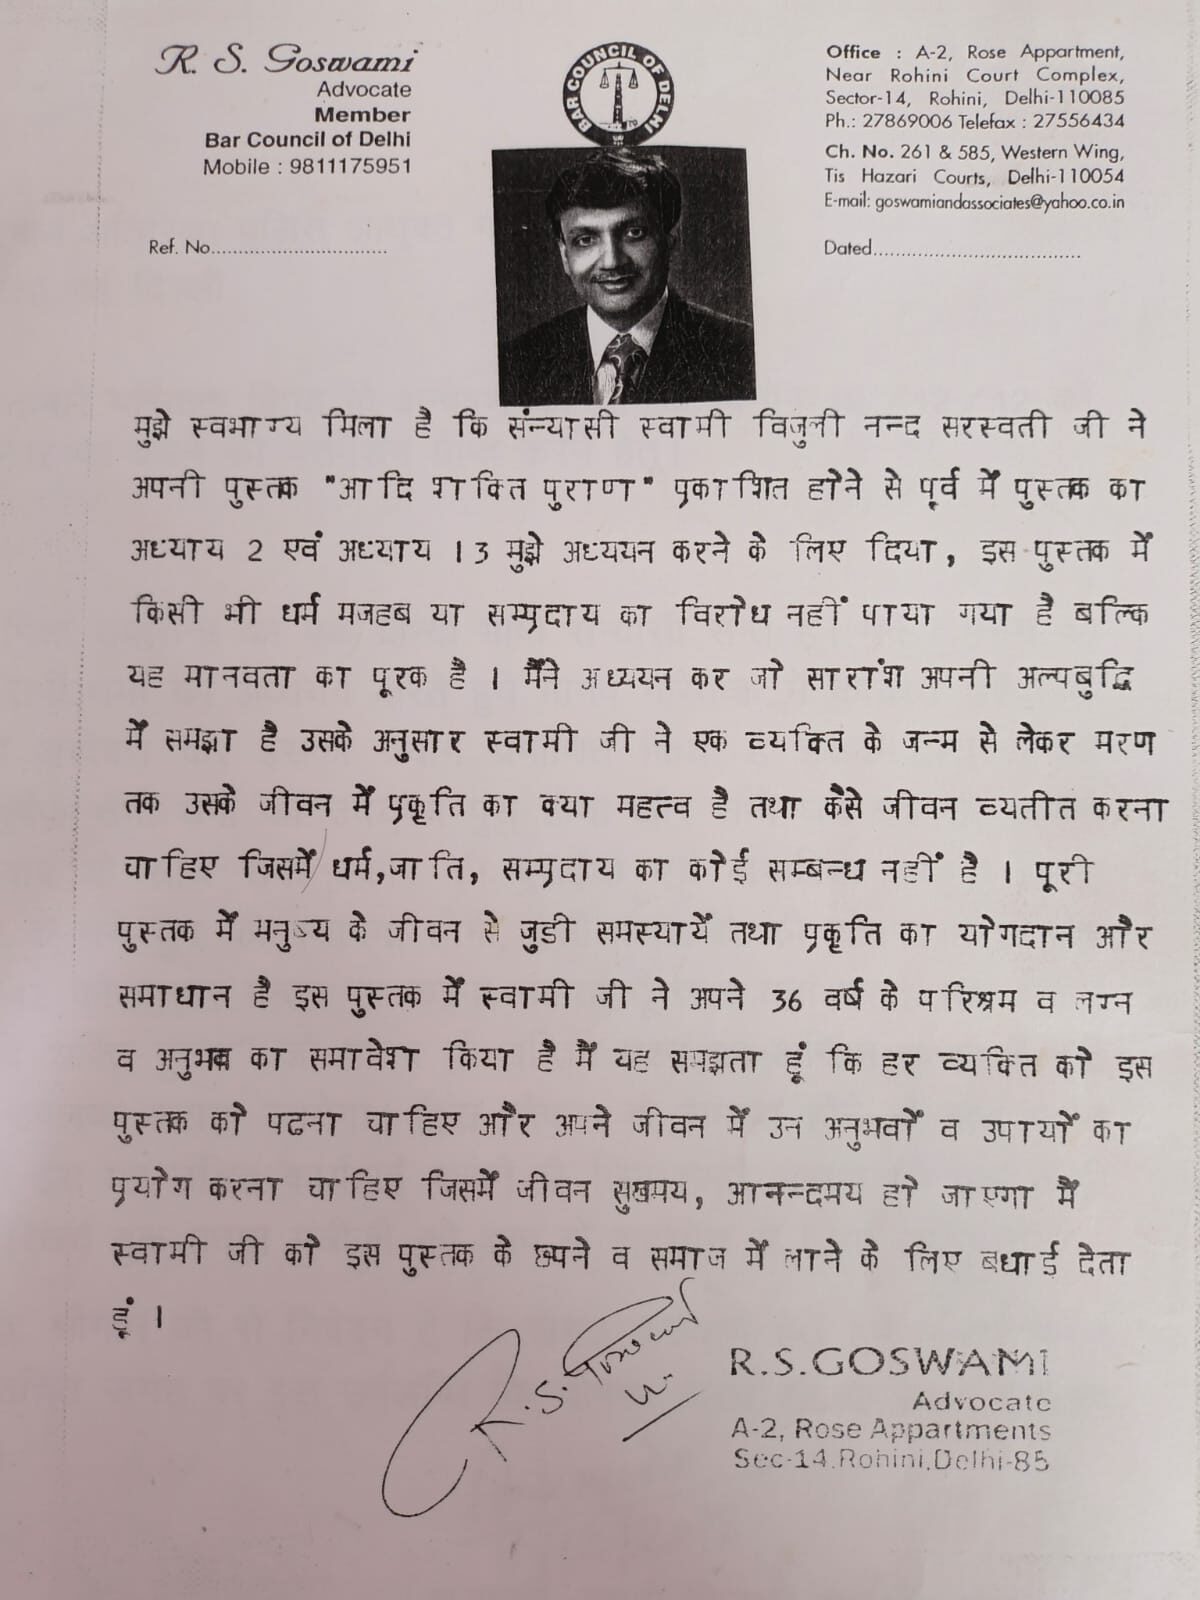 R. S. Goswami
Advocate
Member
Bar Council of Delhi
Mobile : 9811175951
BAR COUNCIL OF DELHI
Office : A-2, Rose Appartment,
Near Rohini Court Complex,
Sector-14, Rohini, Delhi-110085
Ph.: 27869006 Telefax : 27556434
Ch. No. 261 & 585, Western Wing,
Tis Hazari Courts, Delhi-110054
E-mail: goswamiandassociates@yahoo.co.in
Ref. No................................
Dated.....................................
मुझे स्वभाग्य मिला है कि संन्यासी स्वामी विजुली नन्द सरस्वती जी ने
अपनी पुस्तक "आदि शक्ति पुराण" प्रकाशित होने से पूर्व में पुस्तक का
अध्याय 2 एवं अध्याय 13 मुझे अध्ययन करने के लिए दिया, इस पुस्तक में
किसी भी धर्म मजहब या सम्प्रदाय का विरोध नहीं पाया गया है बल्कि
यह मानवता का पूरक है । मैंने अध्ययन कर जो सारांश अपनी अल्पबुद्धि
में समझा है उसके अनुसार स्वामी जी ने एक व्यक्ति के जन्म से लेकर मरण
तक उसके जीवन में प्रकृति का क्या महत्व है तथा कैसे जीवन व्यतीत करना
चाहिए जिसमें धर्म,जाति, सम्प्रदाय का कोई सम्बन्ध नहीं है । पूरी
पुस्तक में मनुष्य के जीवन से जुडी समस्यायें तथा प्रकृति का योगदान और
समाधान है इस पुस्तक में स्वामी जी ने अपने 36 वर्ष के परिश्रम व लग्न
व अनुभव का समावेश किया है मैं यह समझता हूं कि हर व्यक्ति को इस
पुस्तक को पढना चाहिए और अपने जीवन में उन अनुभवों व उपायों का
प्रयोग करना चाहिए जिसमें जीवन सुखमय, आनन्दमय हो जाएगा मैं
स्वामी जी को इस पुस्तक के छपने व समाज में लाने के लिए बधाई देता
हूं ।
R.S. Goswami
R.S.GOSWAMI
Advocate
A-2, Rose Appartments
Sec-14,Rohini,Delhi-85